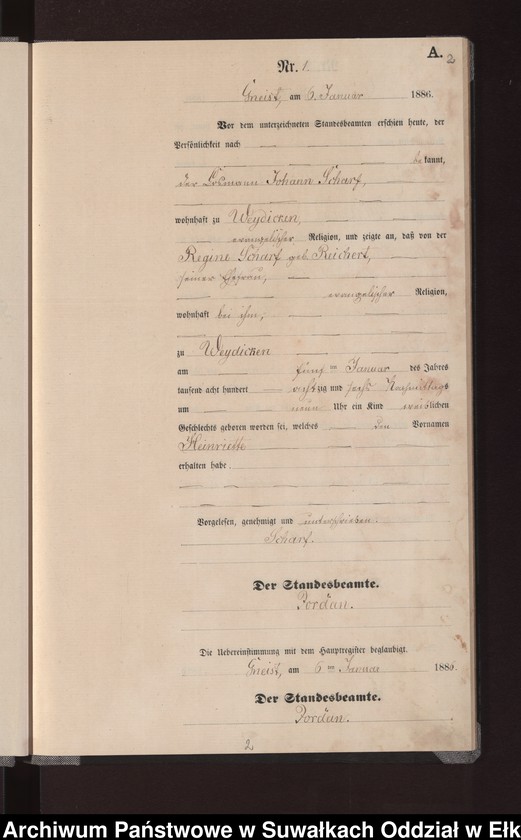 A.
2
Nr. 1.
Gneist, am 6. Januar 1886.
Vor dem unterzeichneten Standesbeamten erschien heute, der
Persönlichkeit nach
bekannt,
der Losmann Johann Scharf,
wohnhaft zu Weydicken,
evangelischer Religion, und zeigte an, daß von der
Regine Scharf geb. Reichert,
seiner Ehefrau,
evangelischer Religion,
wohnhaft bei ihm,
zu Weydicken
am fünften Januar des Jahres
tausend acht hundert achtzig und sechs Nachmittags
um neun Uhr ein Kind weiblichen
Geschlechts geboren worden sei, welches den Vornamen
Heinriette
erhalten habe.
Vorgelesen, genehmigt und unterschrieben.
Scharf.
Der Standesbeamte.
Jordan.
Die Uebereinstimmung mit dem Hauptregister beglaubigt.
Gneist, am 6ten Januar 1886.
Der Standesbeamte.
Jordan.
2
Archiwum Państwowe w Suwałkach Oddział w Ełk